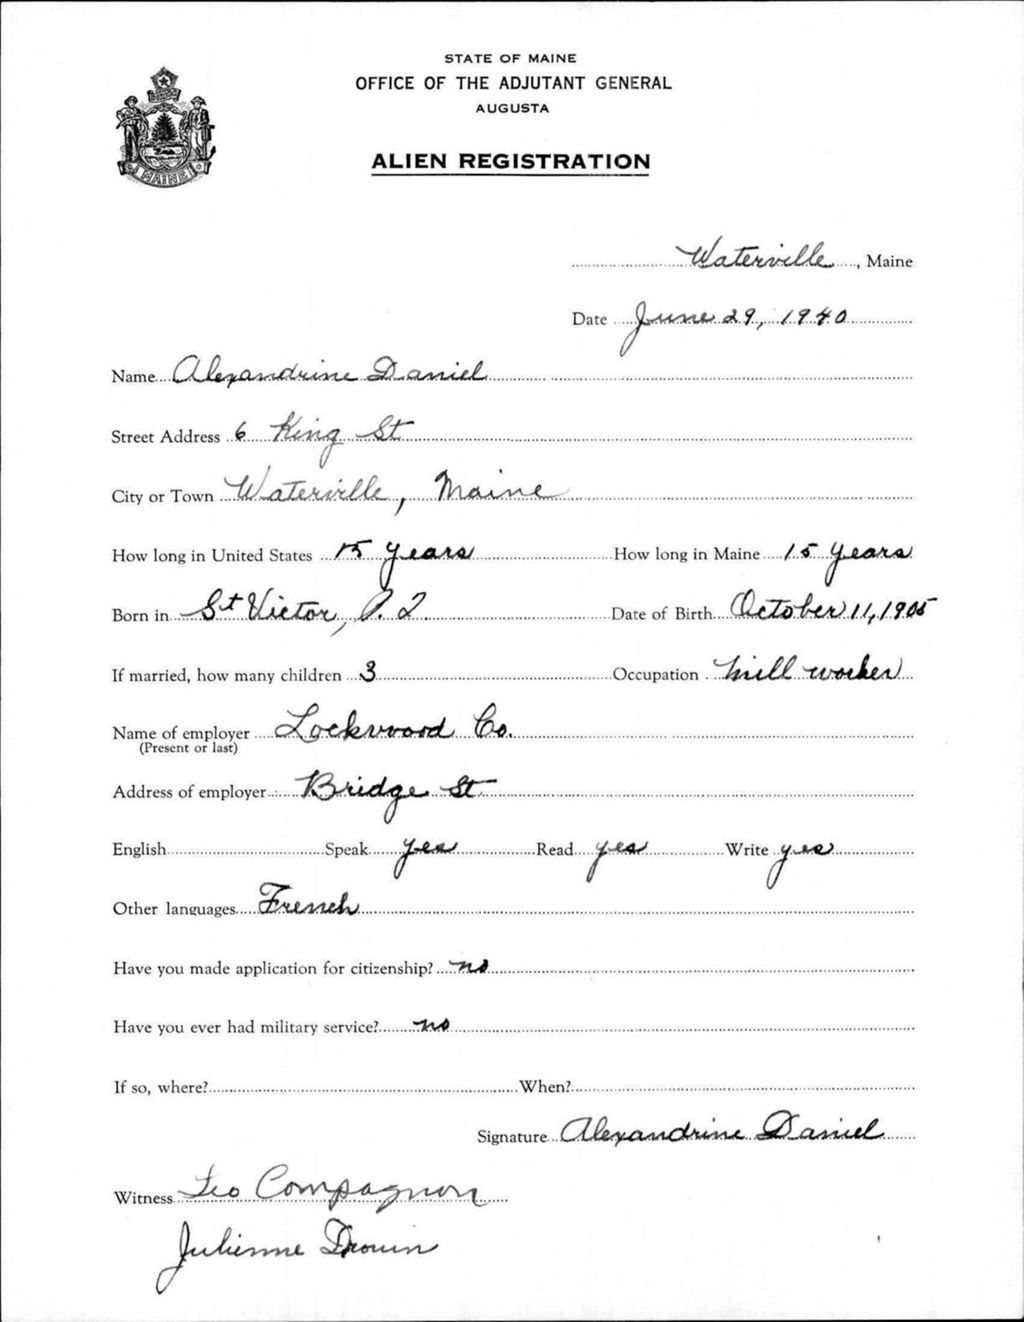 STATE OF MAINE
OFFICE OF THE ADJUTANT GENERAL
AUGUSTA
ALIEN REGISTRATION
MAINE
Waterville, Maine
Date June 29, 1940
Name Alexandrine Daniel
Street Address 6 King St
City or Town Waterville, Maine
How long in United States 15 years How long in Maine 15 years
Born in St Victor, P.Q. Date of Birth October 11, 1905
If married, how many children 3 Occupation Mill worker
Name of employer Lockwood Co.
(Present or last)
Address of employer Bridge St
English Speak yes Read yes Write yes
Other languages French
Have you made application for citizenship? no
Have you ever had military service? no
If so, where? When?
Signature Alexandrine Daniel
Witness Leo Compagnon
Julienne Drouin